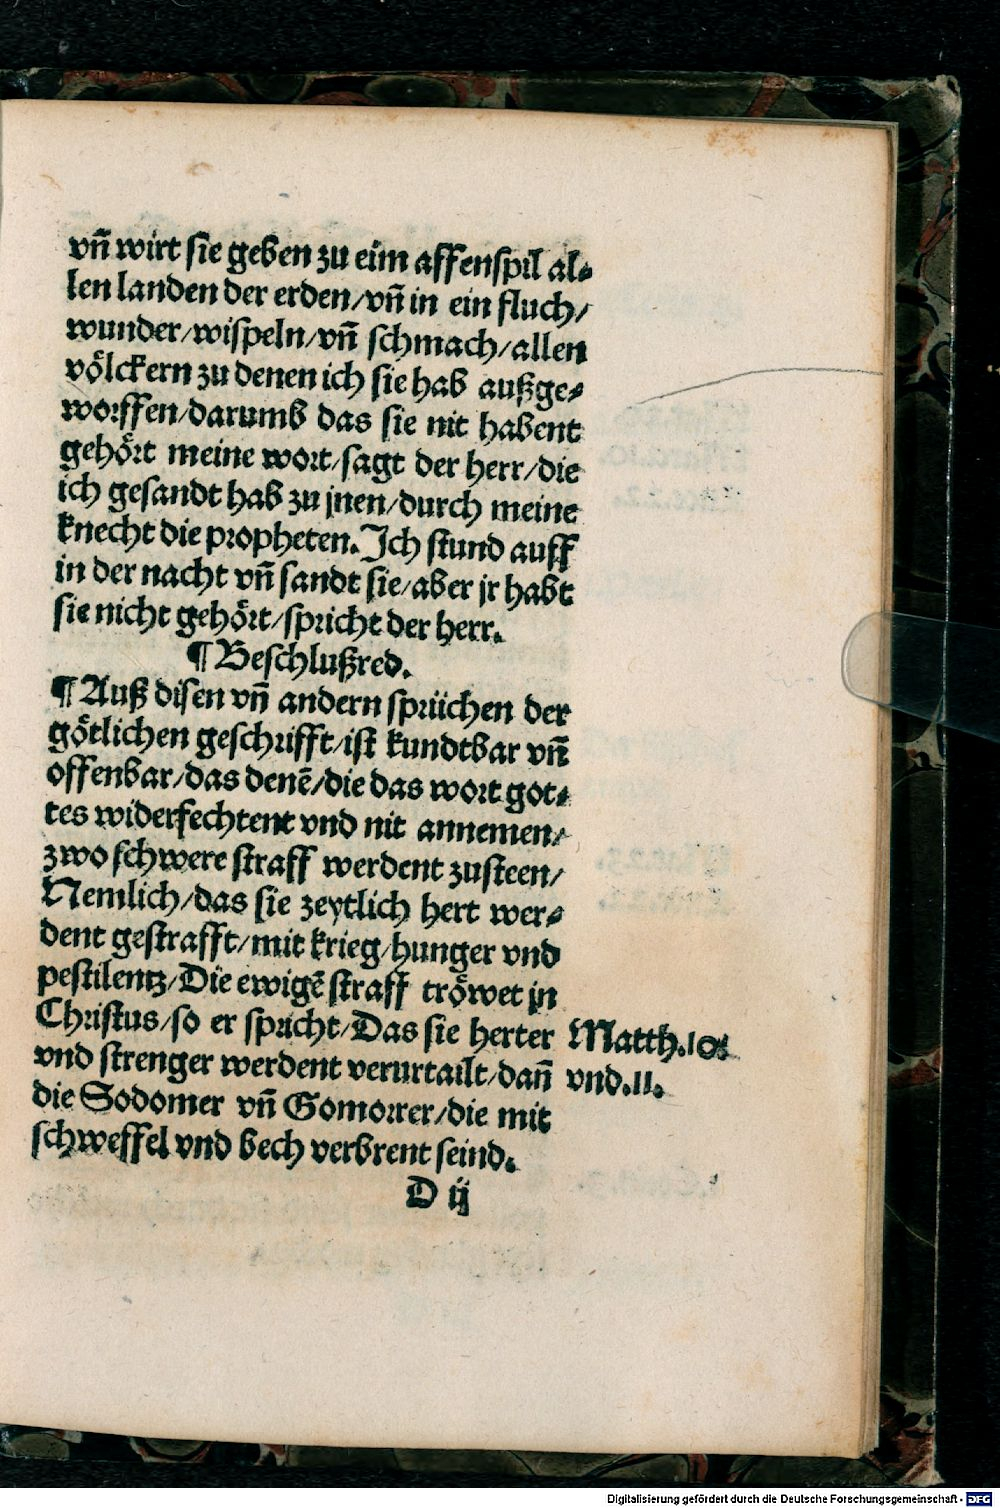 vñ wirt sie geben zu eim affenspil al⸗
len landen der erden/vñ in ein fluch/
wunder/wispeln/vñ schmach/allen
völckern zu denen ich sie hab außge⸗
worffen/darumb das sie nit habent
gehört meine wort/sagt der herr/die
ich gesandt hab zu jnen/durch meine
knecht die propheten. Ich stund auff
in der nacht vñ sandt sie/aber jr habt
sie nicht gehört/spricht der herr.
¶ Beschlußred.
¶ Auß disen vñ andern sprüchen der
götlichen geschrifft/ist kundtbar vñ
offenbar/das denē/die das wort got⸗
tes widerfechtent vnd nit annemen/
zwo schwere straff werdent zusteen/
Nemlich/das sie zeytlich hert wer⸗
dent gestrafft/mit krieg/hunger vnd
pestilentz/Die ewigē straff tröwet jn
Christus/so er spricht/Das sie herter
vnd strenger werdent verurtailt/dañ
die Sodomer vñ Gomorrer/die mit
schweffel vnd bech verbrent seind.
Matth.10.
vnd.11.
D ij
Digitalisierung gefördert durch die Deutsche Forschungsgemeinschaft - DFG